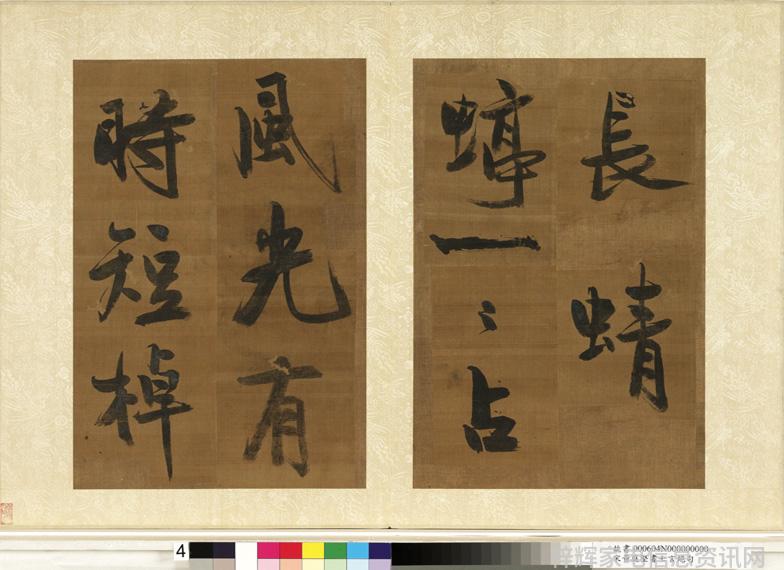 長蜻
蜓一〻占
風光有
時短棹
4
故書000604N000000000